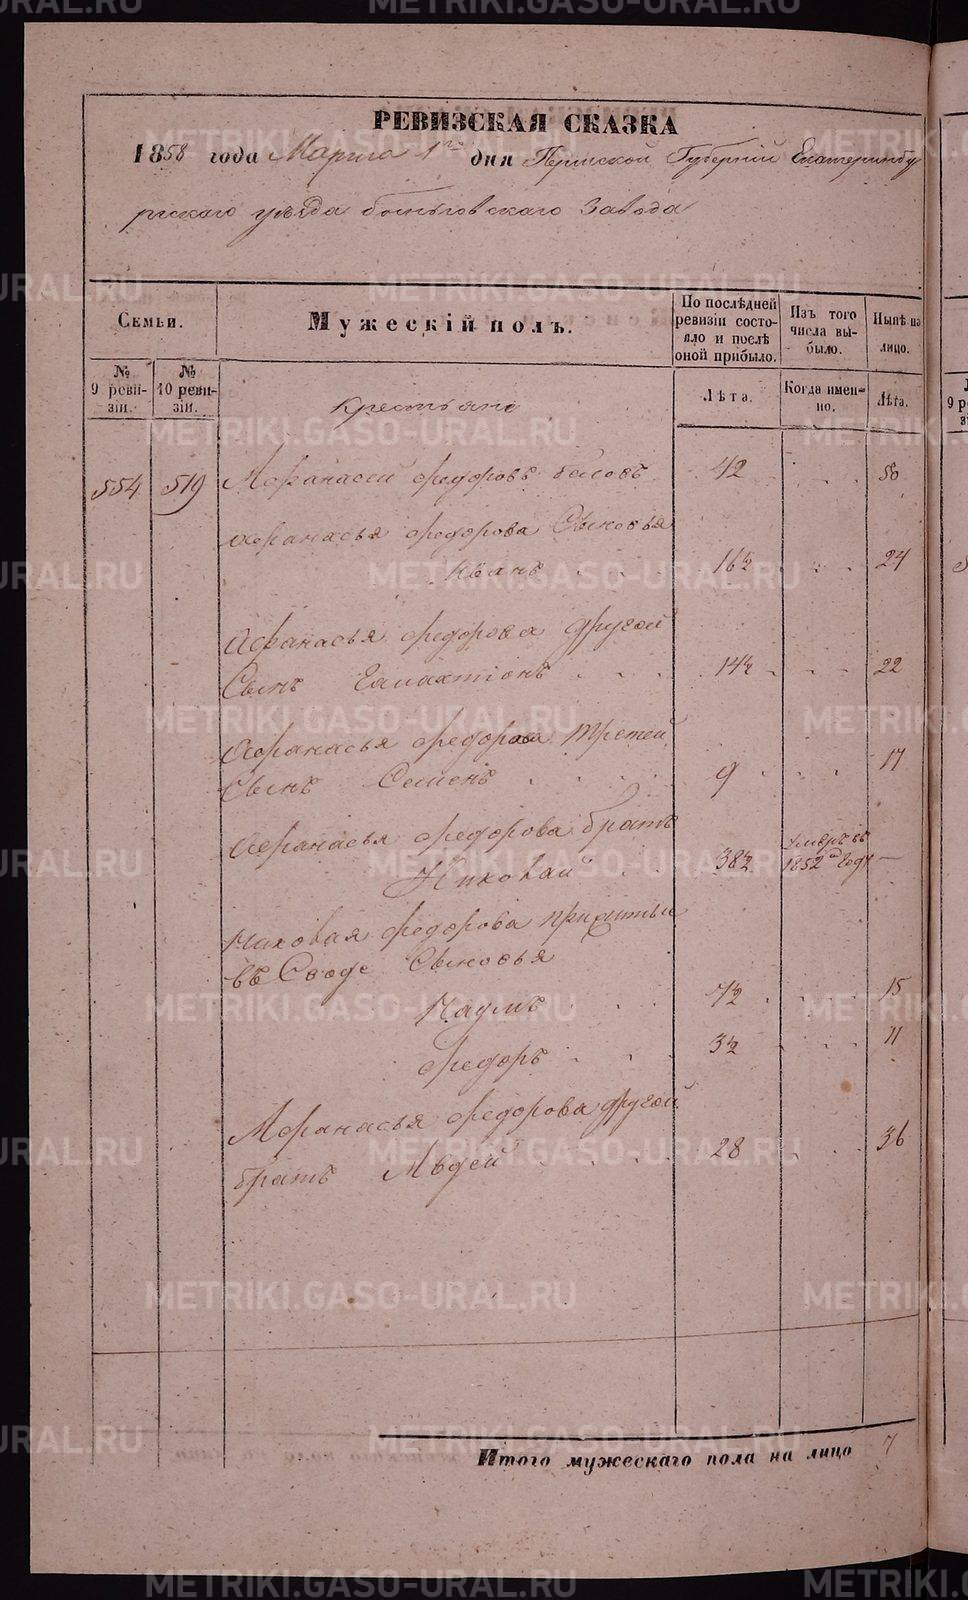 РЕВИЗСКАЯ СКАЗКА
1858 года Марта 1го дня Пермской Губерніи Екатеринбу
ргскаго уѣзда Быньговскаго Завода
Семьи.
Мужескій полъ.
По послѣдней ревизіи состояло и послѣ оной прибыло.
Изъ того числа выбыло.
Нынѣ на лицо.
№ 9 ревизіи.
№ 10 ревизіи.
Лѣта.
Когда именно.
Лѣта.
Крестьяне
554 519 Афанасий Федоровъ 42 50
Афанасья Федорова Сыновья
Иванъ 16½ 24
Афанасья Федорова другой
Сынъ Галактіонъ 14½ 22
Афанасья Федорова третей
Сынъ Семенъ 9 17
Афанасья Федорова братъ
Николай 38½ умеръ въ 1852м году —
Николая Федорова прижитые
въ Сводѣ Сыновья
Наумъ 7½ 15
Федоръ 3½ 11
Афанасья Федорова другой
братъ Авдей 28 36
Итого мужескаго пола на лицо 7
METRIKI.GASO-URAL.RU